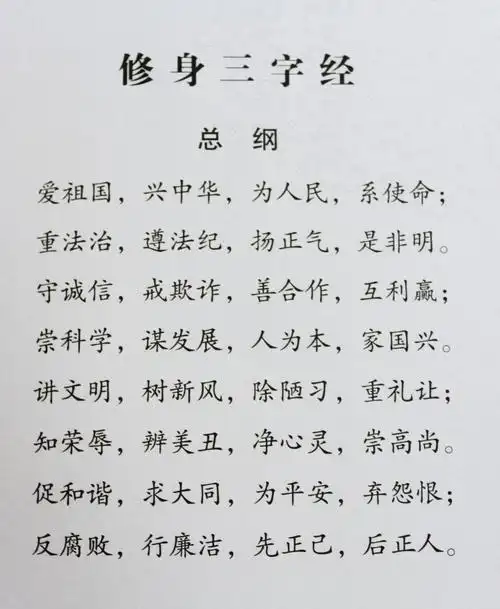 修身三字经
总 纲
爱祖国，兴中华，为人民，系使命；
重法治，遵法纪，扬正气，是非明。
守诚信，戒欺诈，善合作，互利赢；
崇科学，谋发展，人为本，家国兴。
讲文明，树新风，除陋习，重礼让；
知荣辱，辨美丑，净心灵，崇高尚。
促和谐，求大同，为平安，弃怨恨；
反腐败，行廉洁，先正己，后正人。